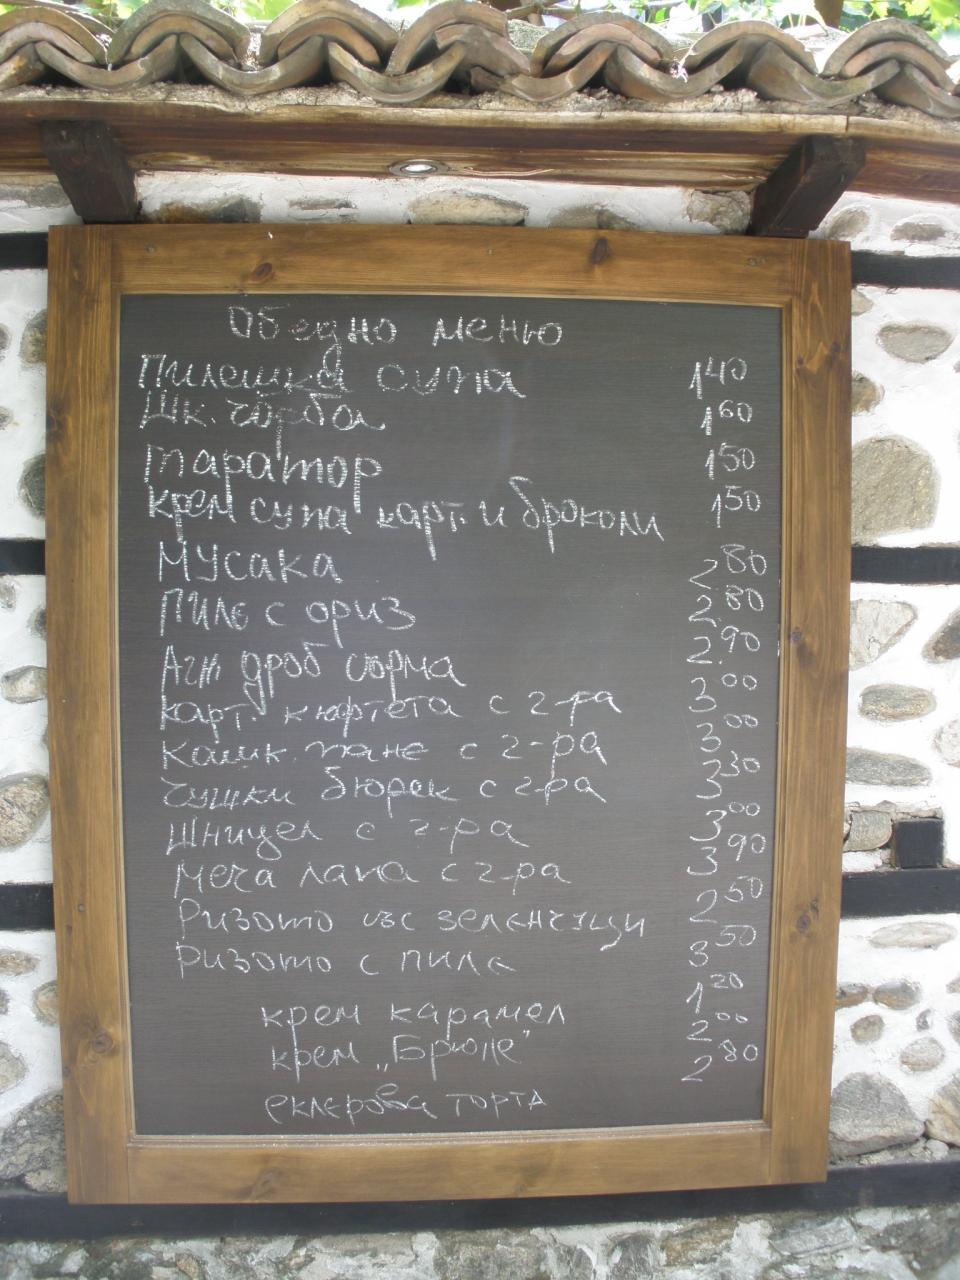 Обедно меню
Пилешка супа 1 40
Шк. чорба 1 60
Таратор 1 50
Крем супа карт. и броколи 1 50
Мусака 2 80
Пиле с ориз 2. 80
Агн. дроб сърма 2. 90
карт. кюфтета с г-ра 3 00
Кашк. пане с г-ра 3 00
Чушки бюрек с г-ра 3 30
Шницел с г-ра 3 00
Меча лапа с г-ра 3 90
Ризото със зеленчуци 2 50
Ризото с пиле 3 50
крем карамел 1 20
крем „Брюле" 2 00
еклерова торта 2 80